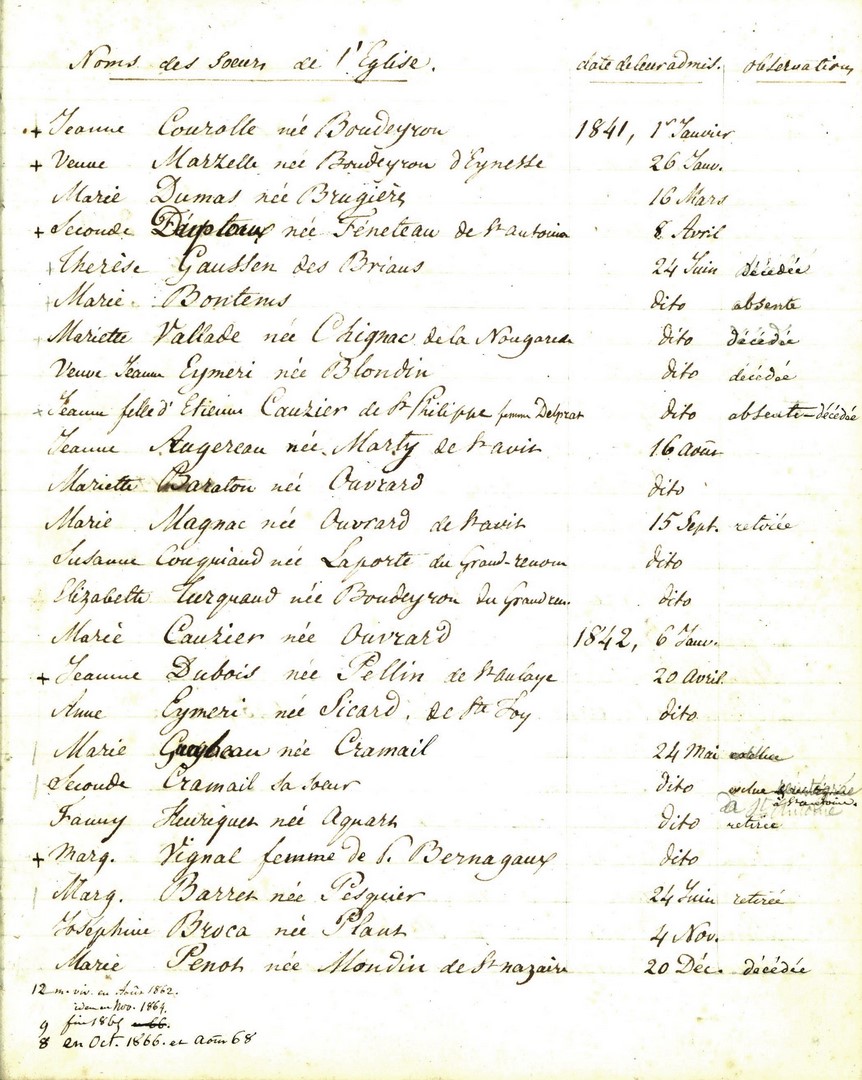 Noms des soeurs de l'Eglise. date de leur admis. observations
+ Jeanne Courolle née Boudeyron 1841, 1er Janvier
+ Veuve Marzelle née Boudeyron d'Eynesse 26 Janv.
Marie Dumas née Brugière 16 Mars
+ Seconde née Féneteau de St antoine 8 Avril
Therèse Gaussen des Briaus 24 Juin décédée
Marie Bontems dito absente
Mariette Vallade née Chignac de la Nougarede dito décédée
Veuve Jeanne Eymeri née Blondin dito décédée
+ Jeanne fille d'Etienne Cauzier de St Philippe femme Delprat dito absente - décédée
Jeanne Augereau née Marty de St avit 16 Août
Mariette Baraton née Ouvrard dito
Marie Magnac née Ouvrard de St avit 15 Sept. retirée
Susanne Couquiaud née Laporte du Grand-renom dito
Elizabeth Turquaud née Boudeyron du Grand ren. dito
Marie Cauzier née Ouvrard 1842, 6 Janv.
+ Jeanne Dubois née Pellin de St aulaye 20 Avril
Anne Eymeri née Sicard. de Ste Foy dito
Marie née Cramail 24 Mai
Seconde Cramail sa soeur dito exclue
à St antoine.
Fanny Henriquet née Aquart dito retirée
+ Marg. Vignal femme de P. Bernagaux dito
Marg. Barret née Pesquier 24 Juin retirée
Josephine Broca née Plant 4 Nov.
Marie Penot née Mondin de St nazaire 20 Déc. décédée
12 viv. en Août 1862.
idem en Nov. 1864.
9 fin 1865 66.
8 en Oct. 1866. et Août 68